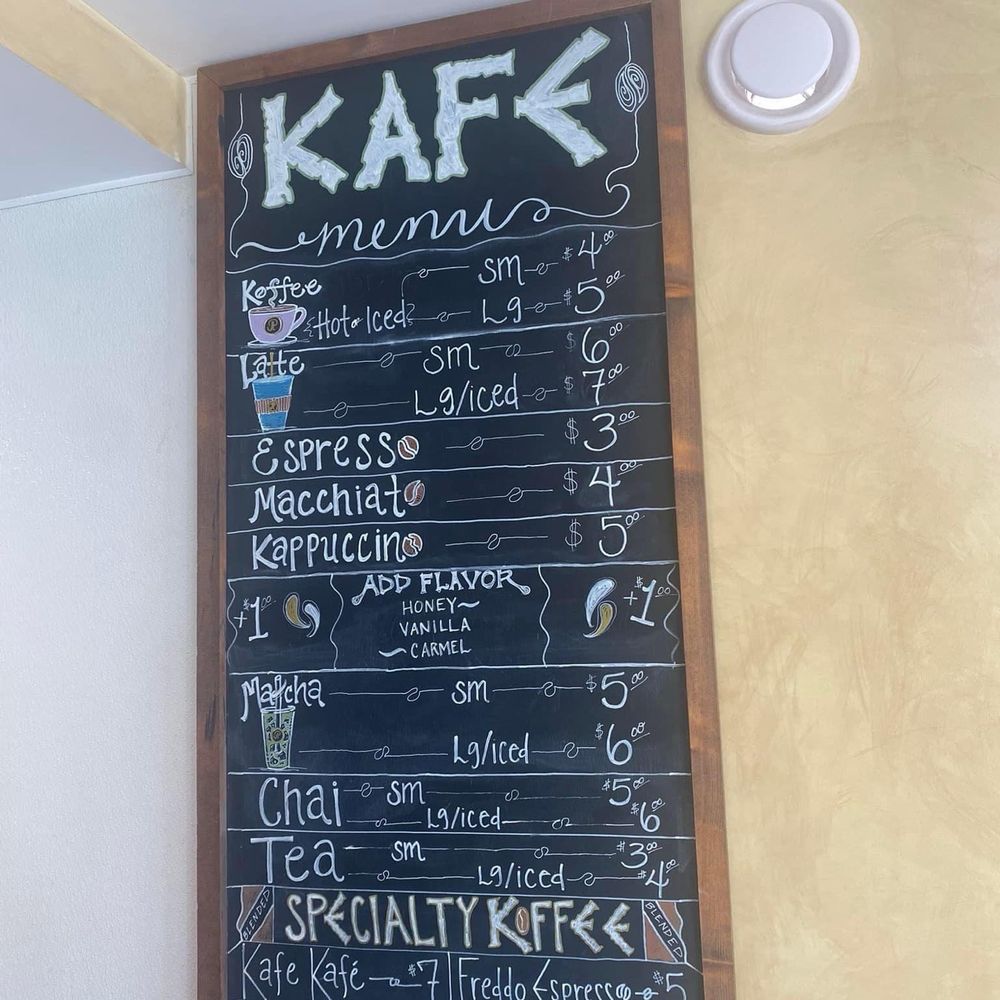 KAFE
menu
Koffee sm $4.00
Hot or Iced Lg $5.00
Latte sm $6.00
Lg/iced $7.00
Espresso $3.00
Macchiato $4.00
Kappuccino $5.00
ADD FLAVOR
+$1.00 HONEY +$1.00
VANILLA
CARMEL
Matcha sm $5.00
Lg/iced $6.00
Chai sm $5.00
Lg/iced $6
Tea sm $3.00
Lg/iced $4
BLENDED SPECIALTY KOFFEE BLENDED
Kafe Kafé $7 Freddo Espresso $5